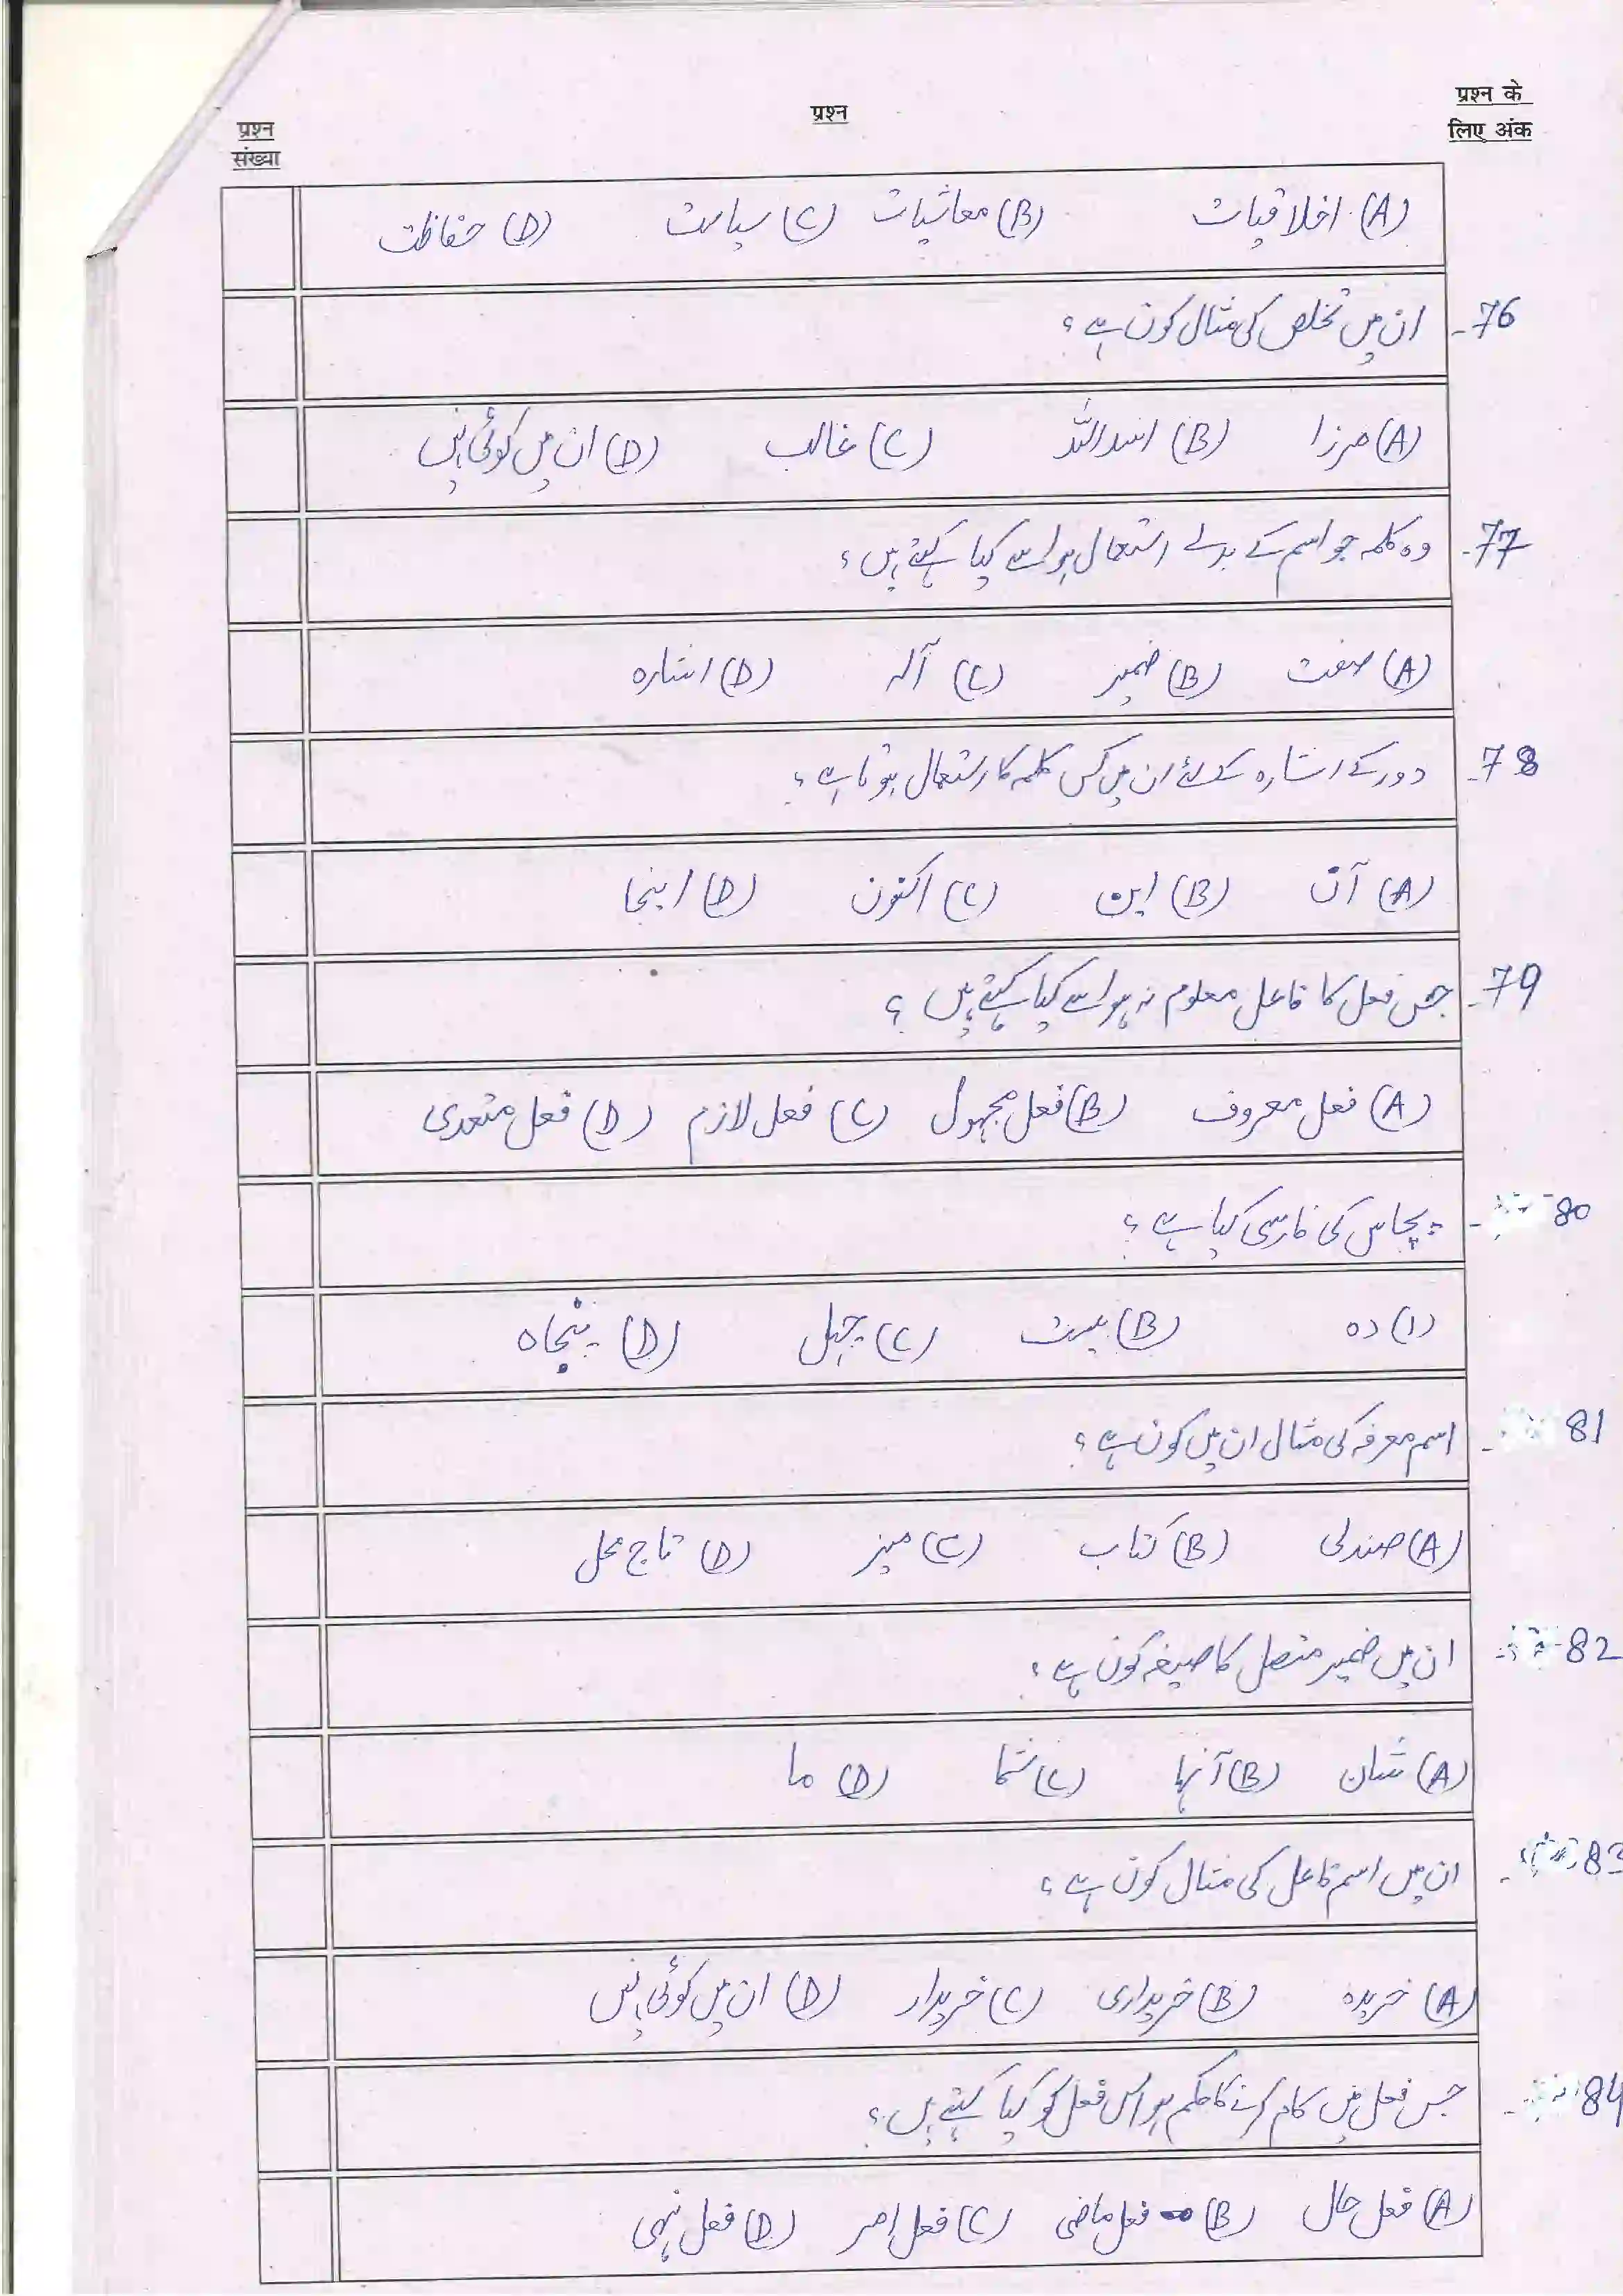 प्रश्न संख्या
प्रश्न
प्रश्न के लिए अंक
(A) اخلاقیات (B) معاشیات (C) سیاست (D) حفاظت
76- ان میں تخلص کی مثال کون ہے؟
(A) مرزا (B) اسداللہ (C) غالب (D) ان میں کوئی نہیں
77- وہ کلمہ جو اسم کے بدلے استعمال ہو اسے کیا کہتے ہیں؟
(A) صفت (B) ضمیر (C) آلہ (D) اشارہ
78- دور کے اشارہ کے لئے ان میں کس کلمہ کا استعمال ہوتا ہے؟
(A) آن (B) این (C) اکنون (D) اینجا
79- جس فعل کا فاعل معلوم نہ ہو اسے کیا کہتے ہیں؟
(A) فعل معروف (B) فعل مجہول (C) فعل لازم (D) فعل متعدی
80- پچاس کی فارسی کیا ہے؟
(۱) دہ (B) بیست (C) چہل (D) پنجاہ
81- اسم معرفہ کی مثال ان میں کون ہے؟
(A) صندلی (B) کتاب (C) میز (D) تاج محل
82- ان میں ضمیر متصل کا صیغہ کون ہے؟
(A) شان (B) آنہا (C) شما (D) ما
83- ان میں اسم فاعل کی مثال کون ہے؟
(A) خریدہ (B) خریداری (C) خریدار (D) ان میں کوئی نہیں
84- جس فعل میں کام کرنے کا حکم ہو اس فعل کو کیا کہتے ہیں؟
(A) فعل حال (B) فعل ماضی (C) فعل امر (D) فعل نہی